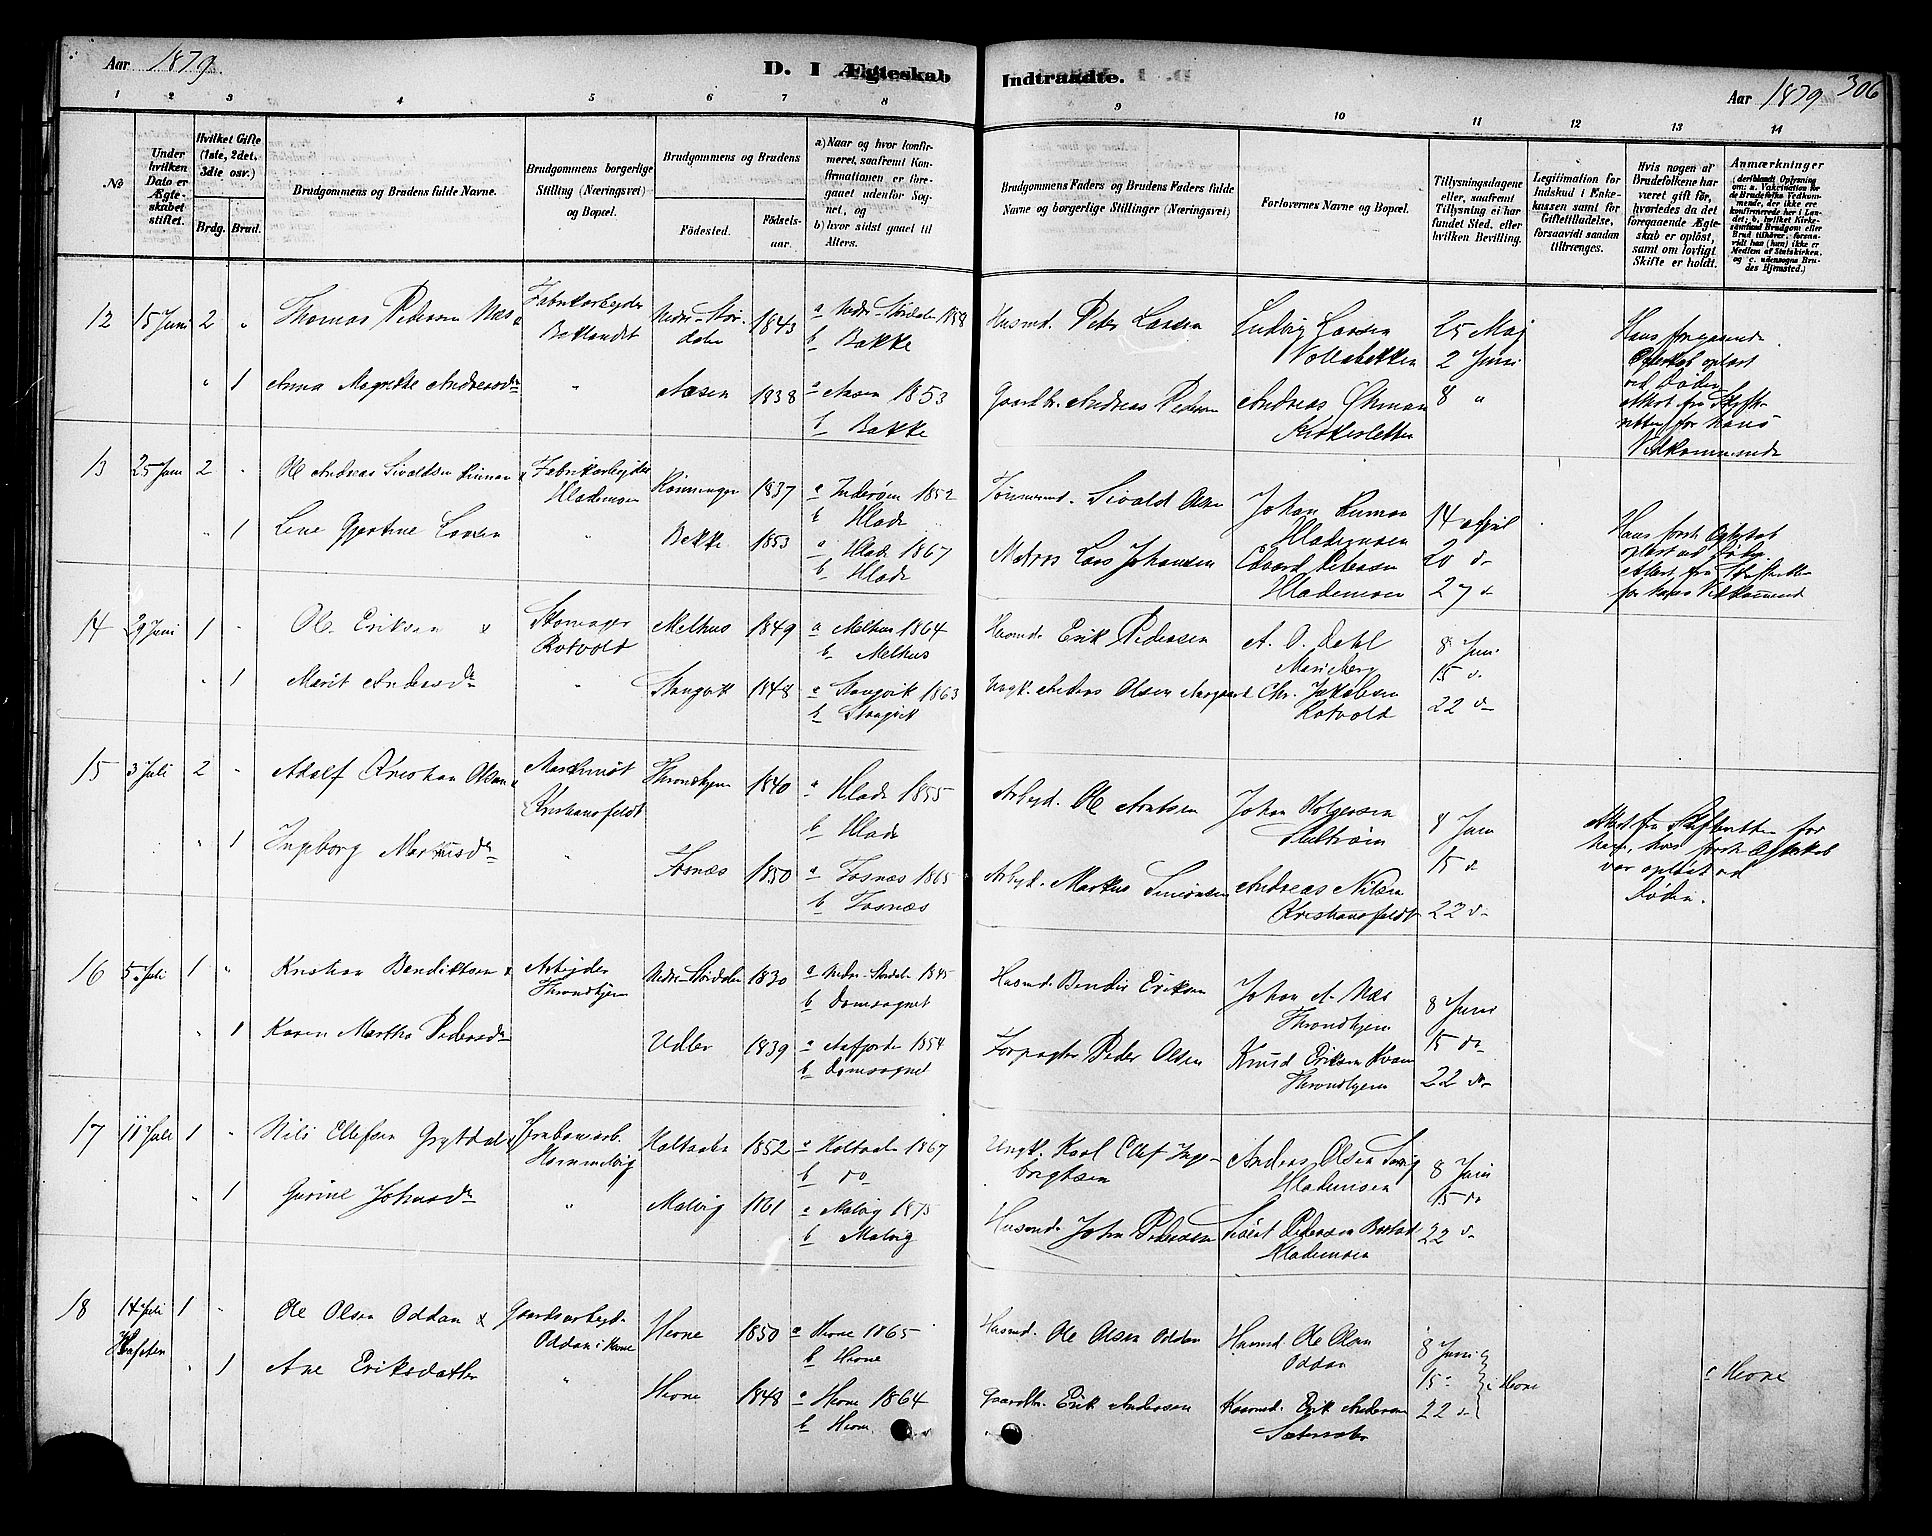 Aar 1879.
D. I Ægteskab Indtraadte.
Aar 1879
306
1 2 3 4 5 6 7 8 9 10 11 12 13 14
No
Under hvilken Dato er Ægteskabet stiftet.
Hvilket Gifte (1ste, 2det, 3die osv.)
Brdg. Brud.
Brudgommens og Brudens fulde Navne.
Brudgommens borgerlige Stilling (Næringsvei) og Bopæl.
Brudgommens og Brudens
Födested.
Födsels-aar.
a) Naar og hvor konfirmeret, saafremt Konfirmationen er foregaaet udenfor Sognet, og
b) hvor sidst gaaet til Alters.
Brudgommens Faders og Brudens Faders fulde Navne og borgerlige Stillinger (Næringsvei)
Forlovernes Navne og Bopæl.
Tillysningsdagene eller, saafremt Tillysning ei har fundet Sted, efter hvilken Bevilling.
Legitimation for Indskud i Enkekassen samt for Giftetilladelse, forsaavidt saadan tiltrænges.
Hvis nogen af Brudefolkene har været gift för, hvorledes da det foregaaende Ægteskab er oplöst, samt om lovligt Skifte er holdt.
Anmærkninger
12 15 Juni 2 " Thomas Pedersen Næs
Fabrikarbeider Baklandet
Nedre-Stördalen 1843
a Nedre-Stördalen 1858
b Bakke
Husmd. Peder Larsen
Ludvig Larsen
Vollabakken
25 Maj
2 Juni
8 "
Hans foregaaende
Ægteskab oplöst
ved Döden
Attest fra Skifteretten for hans
Vedkommende
" 1 Anna Magrethe Andreasdr
" Aasen 1838
a Aasen 1853
b Bakke
Gaardbr. Andreas Pedersen
Andreas Öhman
Kirkesletten
13 25 Juni 2 " Ole Andreas Sivaldsen Rinnan
Fabrikarbeider
Hlademoen
1837
a Inderöen 1852
b Hlade
Sivald Olsen
Johan Rinnan
Hlademoen
14 April
20 d
27 d
Hans förste Ægteskab
oplöst ved Döden.
Attest fra Skifteretten
for hans Vedkommend
" 1 Lene Gjertine Larsen
" Bakke 1853
a Hlade 1867
b Hlade
Matros Lars Johansen
Edvard Petersen
Hlademoen
14 29 Juni 1 " Ole Eriksen x
Skomager
Rotvold
Melhus 1849
a Melhus 1864
b Melhus
Husmd. Erik Pedersen
A. O. Dahl
Marieberg
8 Juni
15 d
22 d
" 1 Marit Andersdr
" Stangvik 1848
a Stangvik 1863
b Stangvik
Ungk. Anders Olsen Aargaard
Chr. Jakobsen
Rotvold
15 3 Juli 2 " Adolf Kristian Olsen x
Maskinist
Kristiansfeldt
Throndhjem 1840
a Hlade 1855
b Hlade
Arbejd. Ole Arntsen
Johan Holgersen
8 Juni
15 d
22 d
Attest fra Skifteretten for
ham, hvis förste Ægteskab
var oplöst ved
Döden.
" 1 Ingborg Markusdr
" Fosnæs 1850
a Fosnæs 1865
b Fosnæs
Arbejd. Markus Simonsen
Andreas Nilsen
Kristiansfeldt
16 5 Juli 1 " Kristian Bendiktsen x
Arbejder
Throndhjem
Nedre-Stördalen 1830
a Nedre-Stördalen 1845
b Domsognet
Husmd. Bendix Eriksen
Johan A. Næs
Throndhjem
8 Juni
15 do
22 do
" 1 Karen Martha Pedersdr
Udler 1839
a Aafjorden 1854
b Domsognet
Forpagter Peder Olsen
Knud Eriksen Kvam
Throndhjem
17 11 Juli 1 " Nils Ellefsen Grytdal x
Jernbanearb.
Hommelvig
Holtaalen 1852
a Holtaalen 1867
b do
Ungk. Karl Ellef Ingebrigtsen
Andreas Olsen
Hlademoen
8 Juni
15 do
22 d
" 1 Gurine Johnsdr
" Malvig 1861
a Malvig 1875
b Malvig
Husmd. John Pedersen
Pedersen
Hlademoen
18 14 Juli 1 " Ole Olsen Oddan x
Gaardsarbejd.
Oddan i Hevne
Hevne 1850
a Hevne 1865
b Hevne
Husmd. Ole Olsen Oddan
Husmd. Ole Olsen
Oddan
8 Juni
15 "
22 d
i Hevne
c Hevne
" 1 Ane Eriksdatter
" Hevne 1848
a Hevne 1864
b Hevne
Gaardbr. Erik Andersen
Erik Andersen